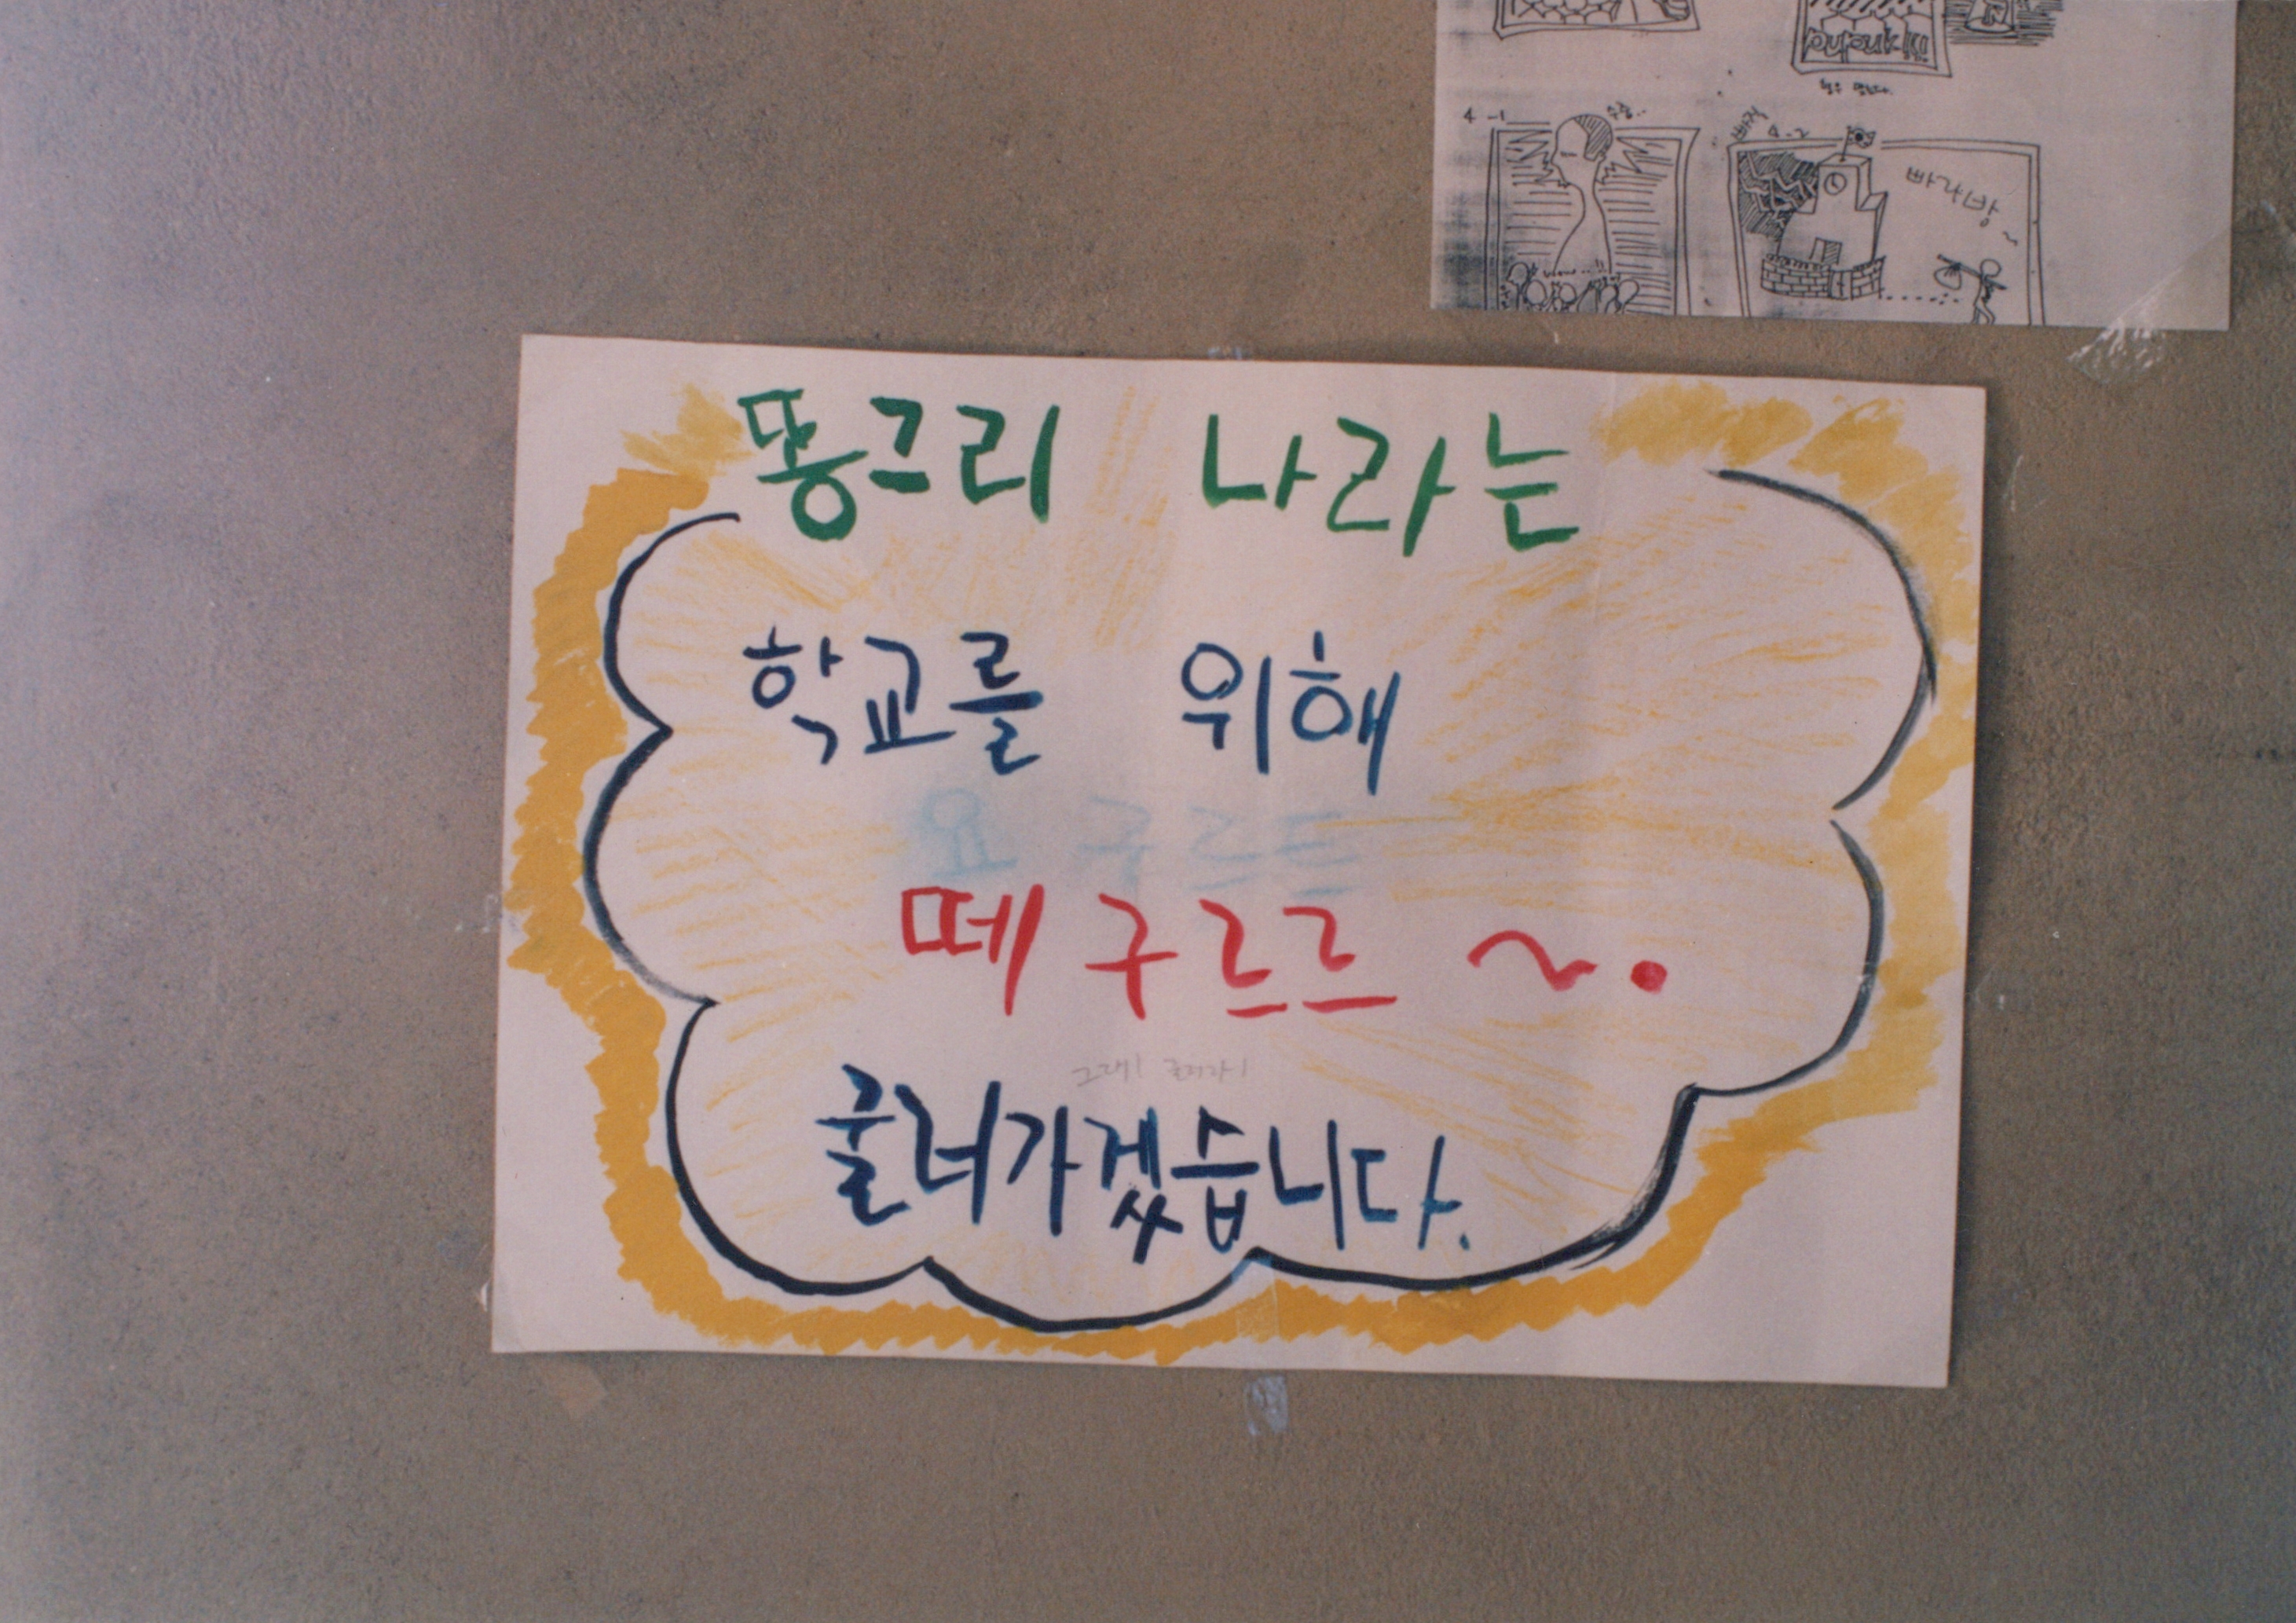 4-1
4-2
빠라방~
똥그리 나라는
학교를 위해
요구르트
떼구르르~.
그래!
굴러가겠습니다.